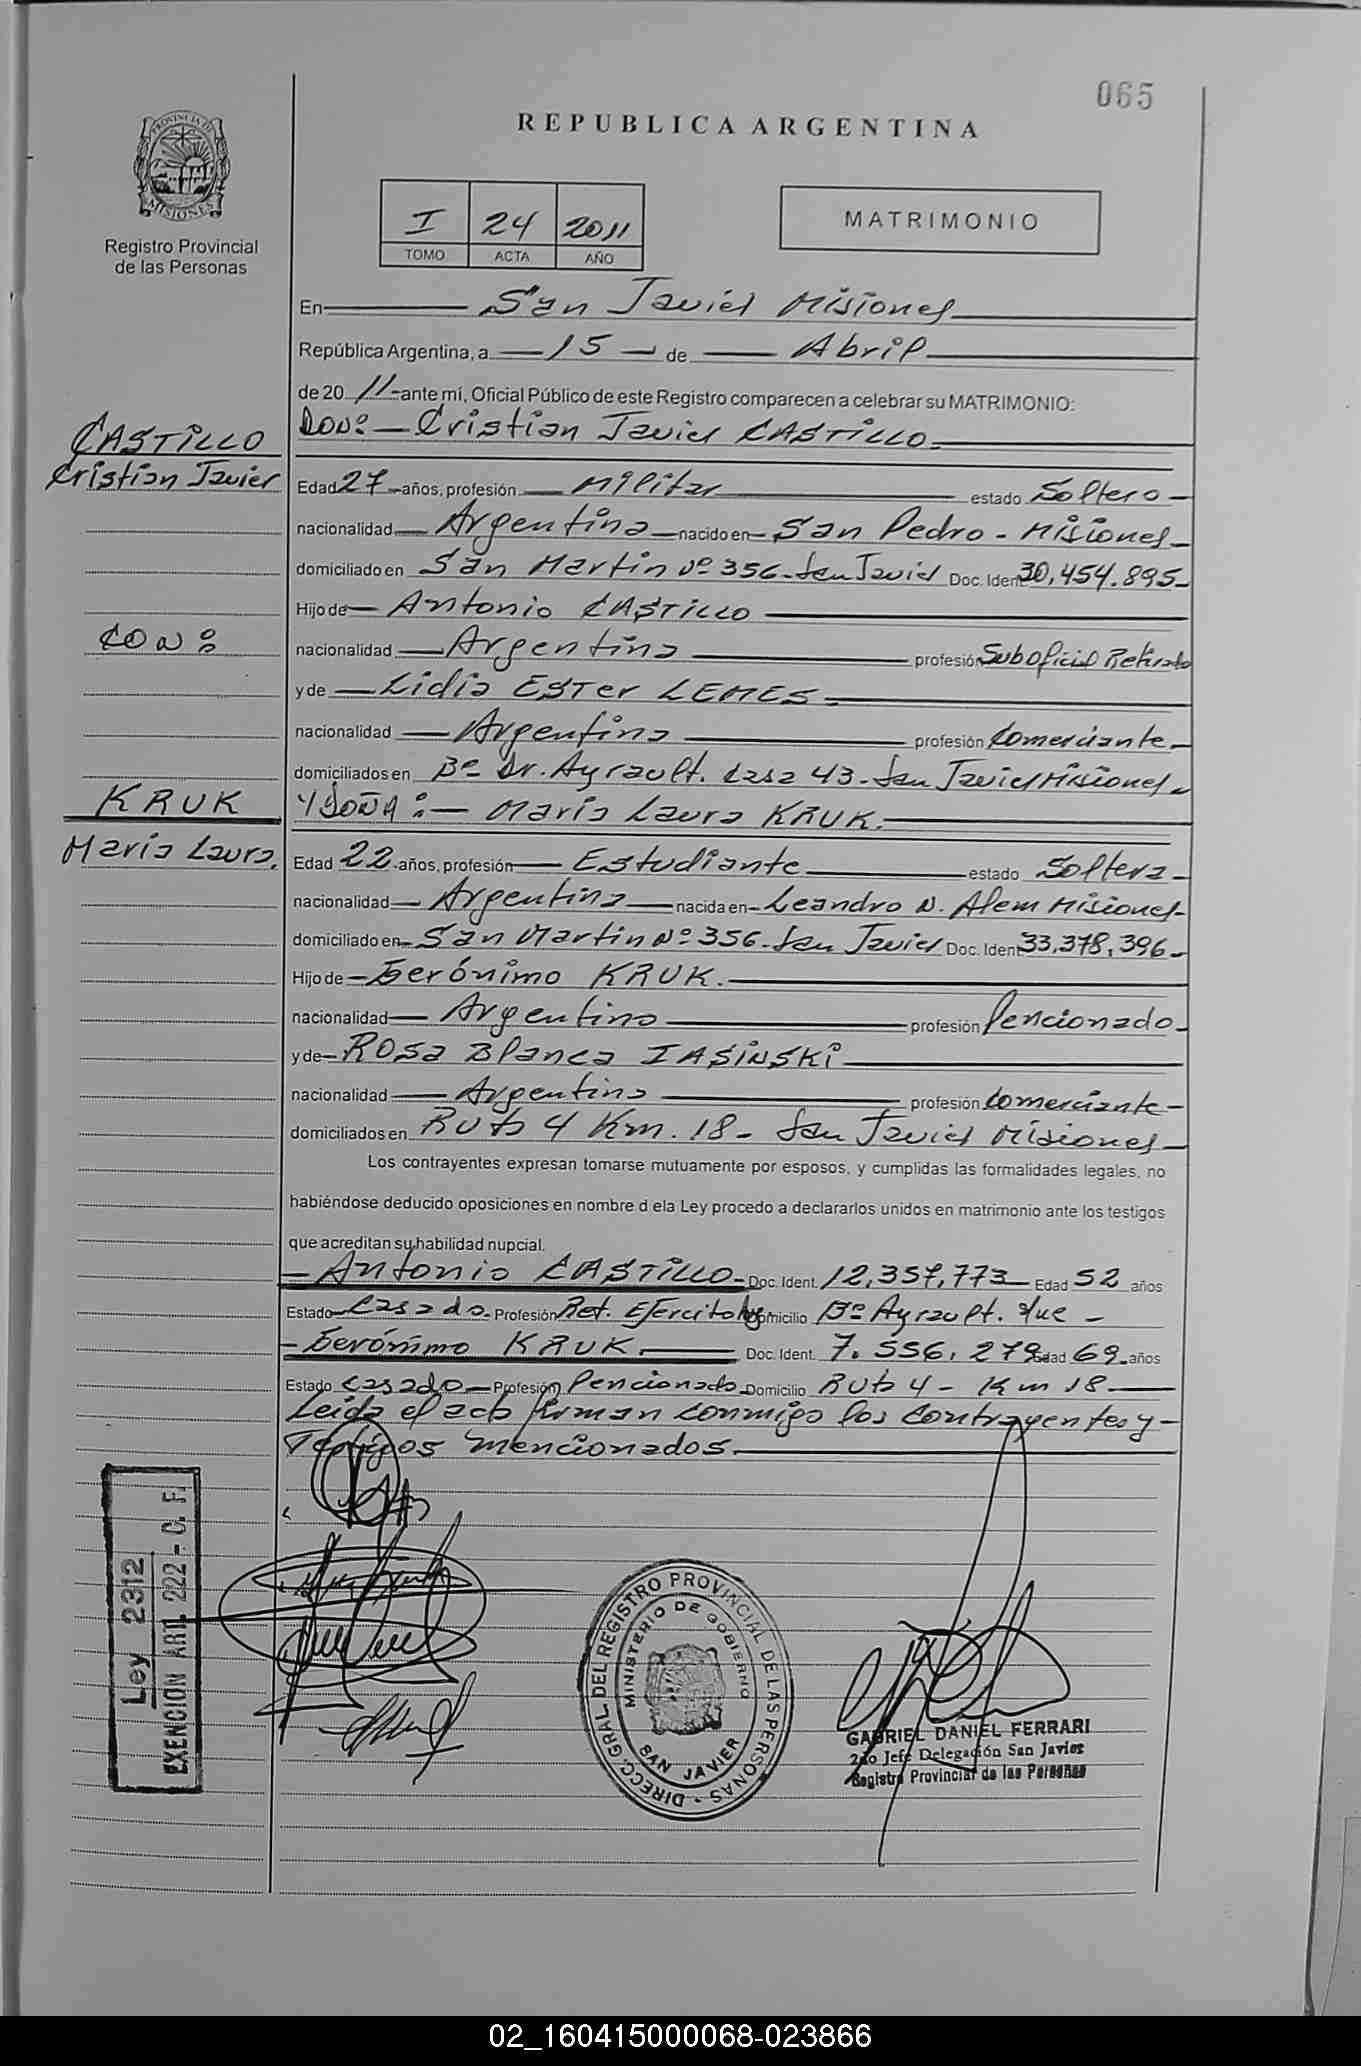 065
REPUBLICA ARGENTINA
PROVINCIA DE
MISIONES
Registro Provincial
de las Personas
I 24 2011
TOMO ACTA AÑO
MATRIMONIO
En San Javier Misiones
República Argentina, a 15 de Abril
de 20 11 ante mí, Oficial Público de este Registro comparecen a celebrar su MATRIMONIO:
CASTILLO
Cristian Javier
CON:
KRUK
Maria Laura.
DON: Cristian Javier CASTILLO
Edad 27 años, profesión Militar estado Soltero
nacionalidad Argentina nacido en San Pedro - Misiones
domiciliado en San Martin Nº 356 - San Javier Doc. Ident 30,454.895
Hijo de Antonio CASTILLO
nacionalidad Argentina profesión Suboficial Retirado
y de Lidia ESTer LEMES
nacionalidad Argentina profesión Comerciante
domiciliados en Bº Dr. Ayrault. Casa 43 - San Javier Misiones
Y DOÑA: Maria Laura KRUK.
Edad 22 años, profesión Estudiante estado Soltera
nacionalidad Argentina nacida en Leandro N. Alem Misiones
domiciliado en San Martin Nº 356 - San Javier Doc. Ident 33,378,396
Hijo de Gerónimo KRUK.
nacionalidad Argentino profesión Pencionado
y de ROSA Blanca IASINSKI
nacionalidad Argentina profesión Comerciante
domiciliados en Ruta 4 Km. 18 - San Javier Misiones
Los contrayentes expresan tomarse mutuamente por esposos, y cumplidas las formalidades legales, no
habiéndose deducido oposiciones en nombre d ela Ley procedo a declararlos unidos en matrimonio ante los testigos
que acreditan su habilidad nupcial.
Antonio CASTILLO Doc. Ident. 12,357,773 Edad 52 años
Estado Casado Profesión Ret. Ejercito Arg Domicilio Bº Ayrault.
Gerónimo KRUK Doc. Ident. 7. 556. 279 Edad 69 años
Estado Casado Profesión Pencionado Domicilio Ruta 4 - Km 18
Leida el acta firman conmigo los contrayentes y
Testigos mencionados.
Ley 2312
EXENCIÓN ART. 222 - C. F.
DIRECC. GRAL. DEL REGISTRO PROVINCIAL DE LAS PERSONAS
MINISTERIO DE GOBIERNO
SAN JAVIER
GABRIEL DANIEL FERRARI
2do Jefe Delegación San Javier
Registro Provincial de las Personas
02_160415000068-023866